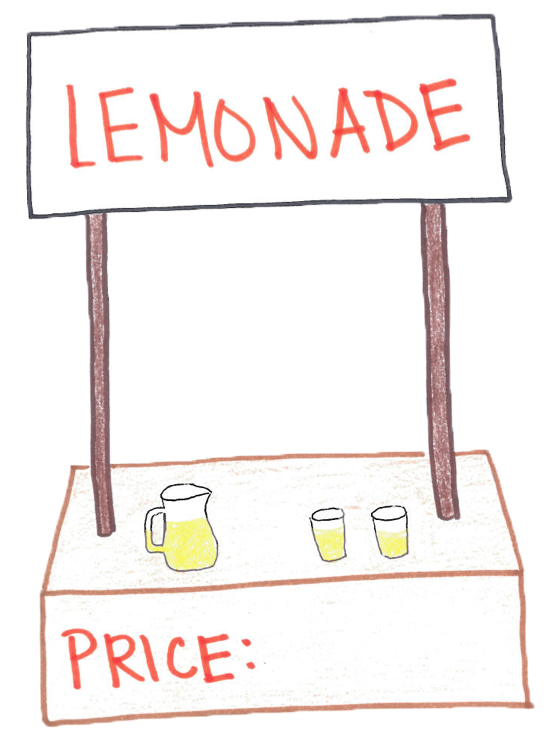 LEMONADE
PRICE: